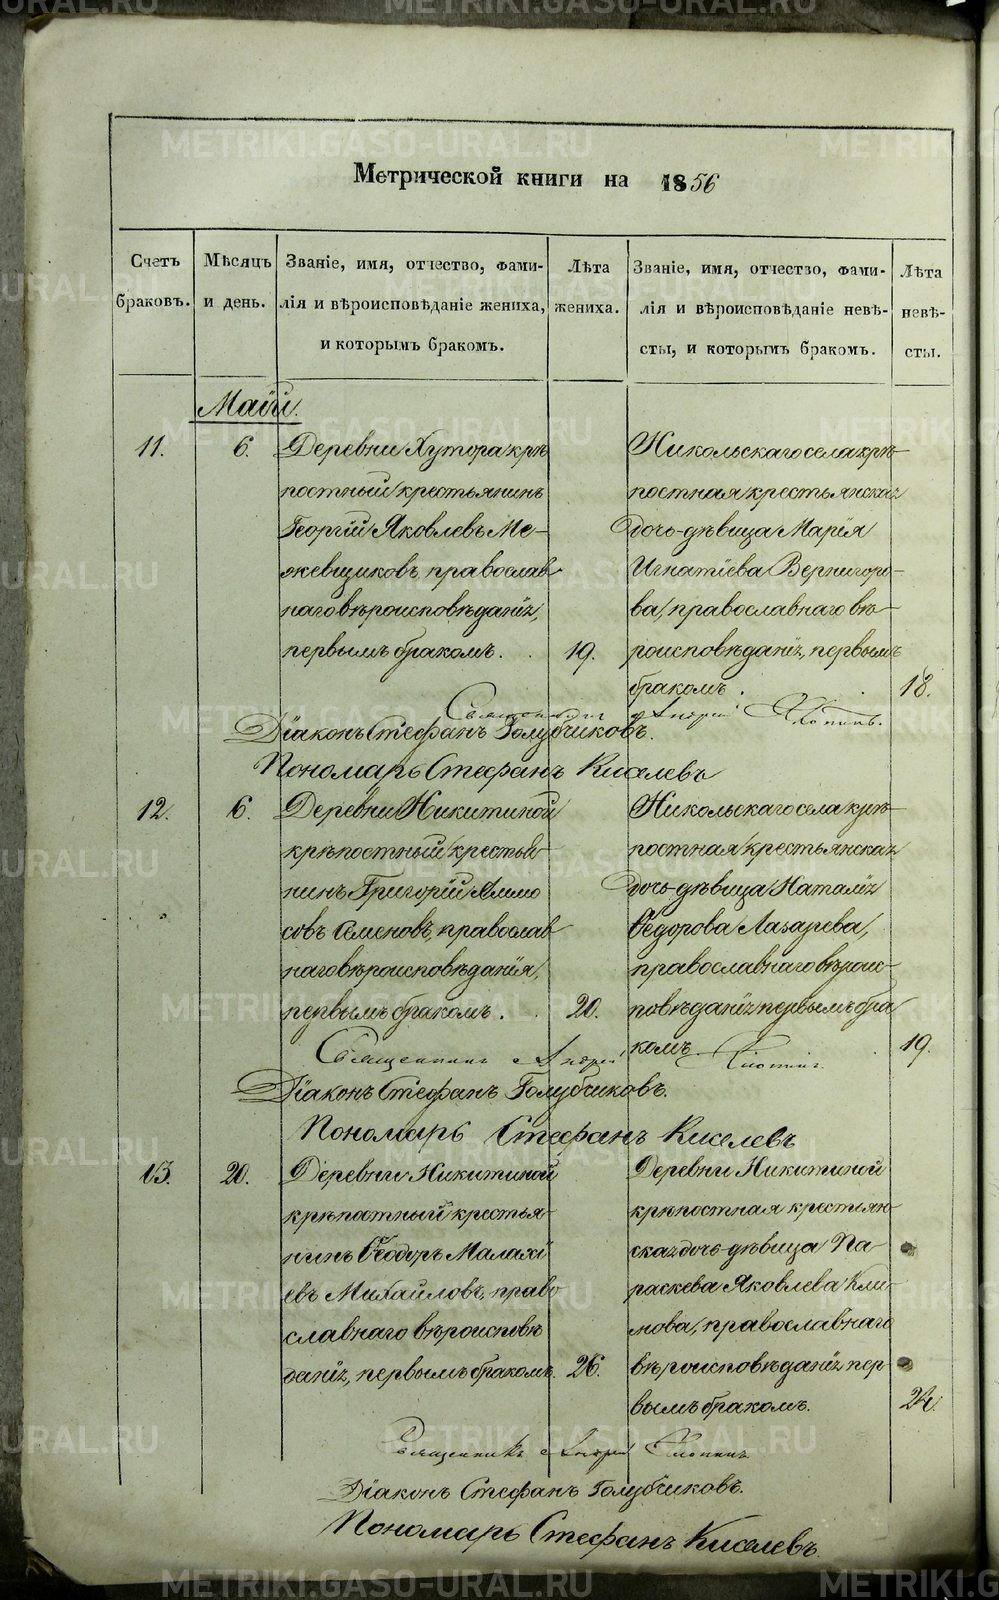 METRIKI.GASO-URAL.RU
Метрической книги на 1856
Счетъ браковъ.
Мѣсяцъ и день.
Званіе, имя, отчество, фами-
лія и вѣроисповѣданіе жениха,
и которымъ бракомъ.
Лѣта жениха.
Званіе, имя, отчество, фами-
лія и вѣроисповѣданіе невѣ-
сты, и которымъ бракомъ.
Лѣта невѣ-
сты.
Маій.
11.
6.
Деревни Хутора крѣ
постный крестьянинъ
Георгій Яковлевъ Ме-
жевщиковъ, православ
наго вѣроисповѣданія,
первымъ бракомъ.
19.
Никольскаго села крѣ-
постная крестьянская
дочь-дѣвица Марія
Игнатіева Вернигоро-
ва, православнаго вѣ-
роисповѣданія, первымъ
бракомъ.
18.
Священникъ Андрей
Діаконъ Стефанъ Голубчиковъ.
Пономарь Стефанъ Киселевъ
12.
6.
Деревни Никитиной
крѣпостный крестья-
нинъ Григорій Аммо
совъ Семеновъ, православ
наго вѣроисповѣданія,
первымъ бракомъ.
20.
Никольскаго села крѣ-
постная крестьянская
дочь-дѣвица Наталія
Ѳедорова Лазарева,
православнаго вѣроис-
повѣданія первымъ бра
комъ
19.
Священникъ Андрей
Діаконъ Стефанъ Голубчиковъ.
Пономарь Стефанъ Киселевъ
13.
20.
Деревни Никитиной
крѣпостный крестья-
нинъ Ѳеодоръ Малахі
евъ Михайловъ, право
славнаго вѣроисповѣ
данія, первымъ бракомъ.
26.
Деревни Никитиной
крѣпостная крестьян-
ская дочь-дѣвица Па-
раскева Яковлева Кли-
мова, православнаго
вѣроисповѣданія пер-
вымъ бракомъ.
24.
Священникъ Андрей
Діаконъ Стефанъ Голубчиковъ.
Пономарь Стефанъ Киселевъ.